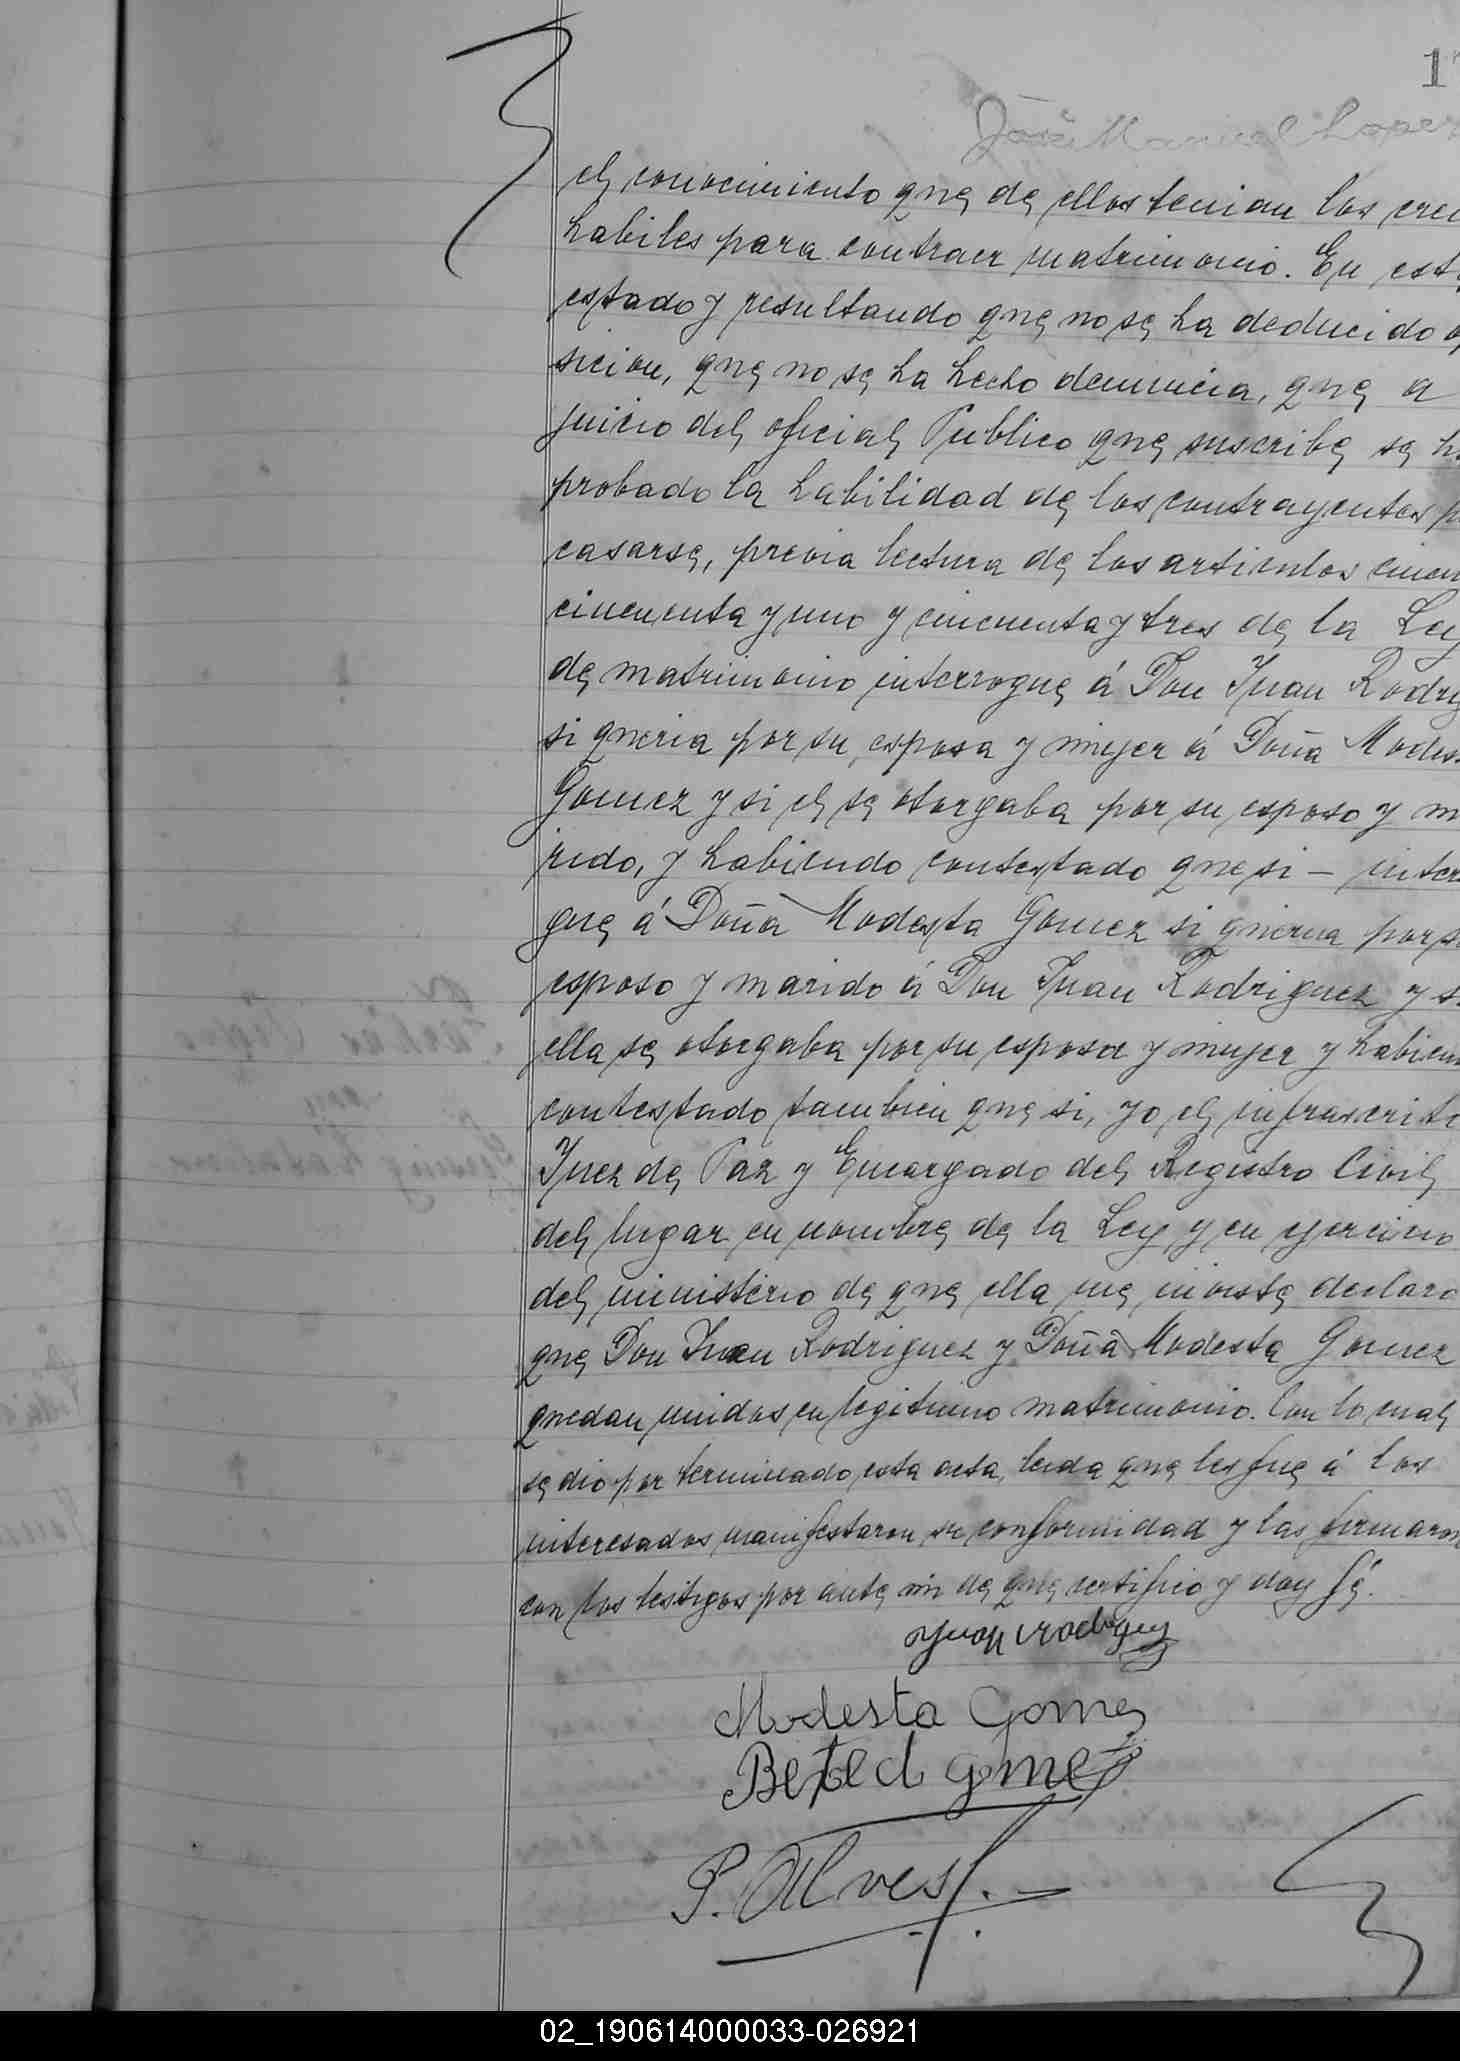 1
José Manuel Lopez
el conocimiento que de ellos tenian los cre
habiles para contraer matrimonio. En est
estado y resultando que no se ha deducido o
sicion, que no se ha hecho denuncia, que a
juicio del oficial Publico que suscribe se h
probado la habilidad de los contrayentes p
casarse, previa lectura de los articulos cincu
cincuenta y uno y cincuenta y tres de la Ley
de matrimonio interrogue á Don Juan Rodrig
si queria por su esposa y mujer á Doña Modes
Gomez y si el se otorgaba por su esposo y m
rido, y habiendo contestado que si - inter
gue á Doña Modesta Gomez si queria por s
esposo y marido á Don Juan Rodriguez y s
ella se otorgaba por su esposa y mujer y habien
contestado tambien que si, yo el infrascrito
Juez de Paz y Encargado del Registro Civil
del lugar en nombre de la Ley y en ejercicio
del ministerio de que ella me inviste declaro
que Don Juan Rodriguez y Doña Modesta Gomez
quedan unidos en legitimo matrimonio. Con lo cual
se dio por terminado esta acta, leida que les fue á los
interesados manifestaron su conformidad y las firmaron
con los testigos por ante mi de que certifico y doy fé.
Juan Rodriguez
Modesta Gomez
gomez
P. Alves
02_190614000033-026921